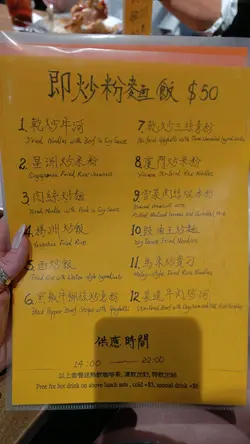 即炒粉麵飯 $50
1. 乾炒牛河
Fried Noodles with Beef in Soy Sauce
2. 星洲炒米粉
Singaporean Fried Rice Vermicelli
3 肉絲炒麵
Fried Noodles with Pork in Soy Sauce
4. 揚洲炒飯
Yangzhou Fried Rice
5. 西炒飯
Fried Rice with Western style ingredients
6. 黑椒牛柳絲炒意粉
Black Pepper Beef Stripes with Spaghetti
7. 乾炒三絲意粉
Stir-fried Spaghetti with Three Shredded Ingredients
8. 廈門炒米粉
Xiamen Fried Rice Vermicelli
9. 雪菜肉絲炆米粉
Braised Vermicelli with
Pickled Mustard Greens and Shredded Pork
10 豉油王炒麵
Soy Sauce Fried Noodles
11. 馬來炒貴刁
Malaysia-style Fried Rice Noodles
12. 菜遠牛肉炒河
Stir-fried Beef with
供應時間
14:00 —— 22:00
以上套餐送熱飲咖啡茶, 凍飲加$3, 特飲加$8
Free for hot drink on above lunch sets , cold +$3, annual drink +$8